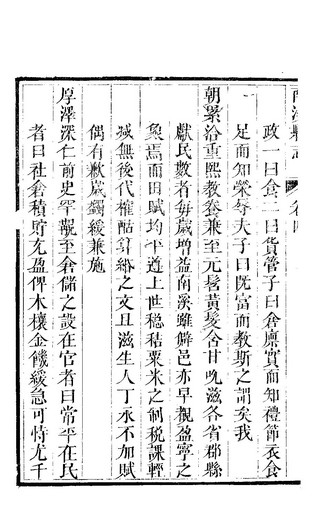 南溪縣志 卷四
政一曰食二曰貨管子曰倉廪實而知禮節衣食
足而知榮辱夫子曰既富而教斯之謂矣我
朝累洽重熙教養兼至元髫黃髮含甘吮滋各省郡縣
獻民數者每歲增益南溪雖僻邑亦早覩盈寧之
象焉而田賦均平邁上世秷秸粟米之制稅課輕
減無後代榷酤算緡之文且滋生人丁永不加賦
偶有歉歲蠲緩兼施
厚澤深仁前史罕觀至倉儲之設在官者曰常平在民
者曰社倉積貯充盈俾木穰金饑緩急可恃尤千